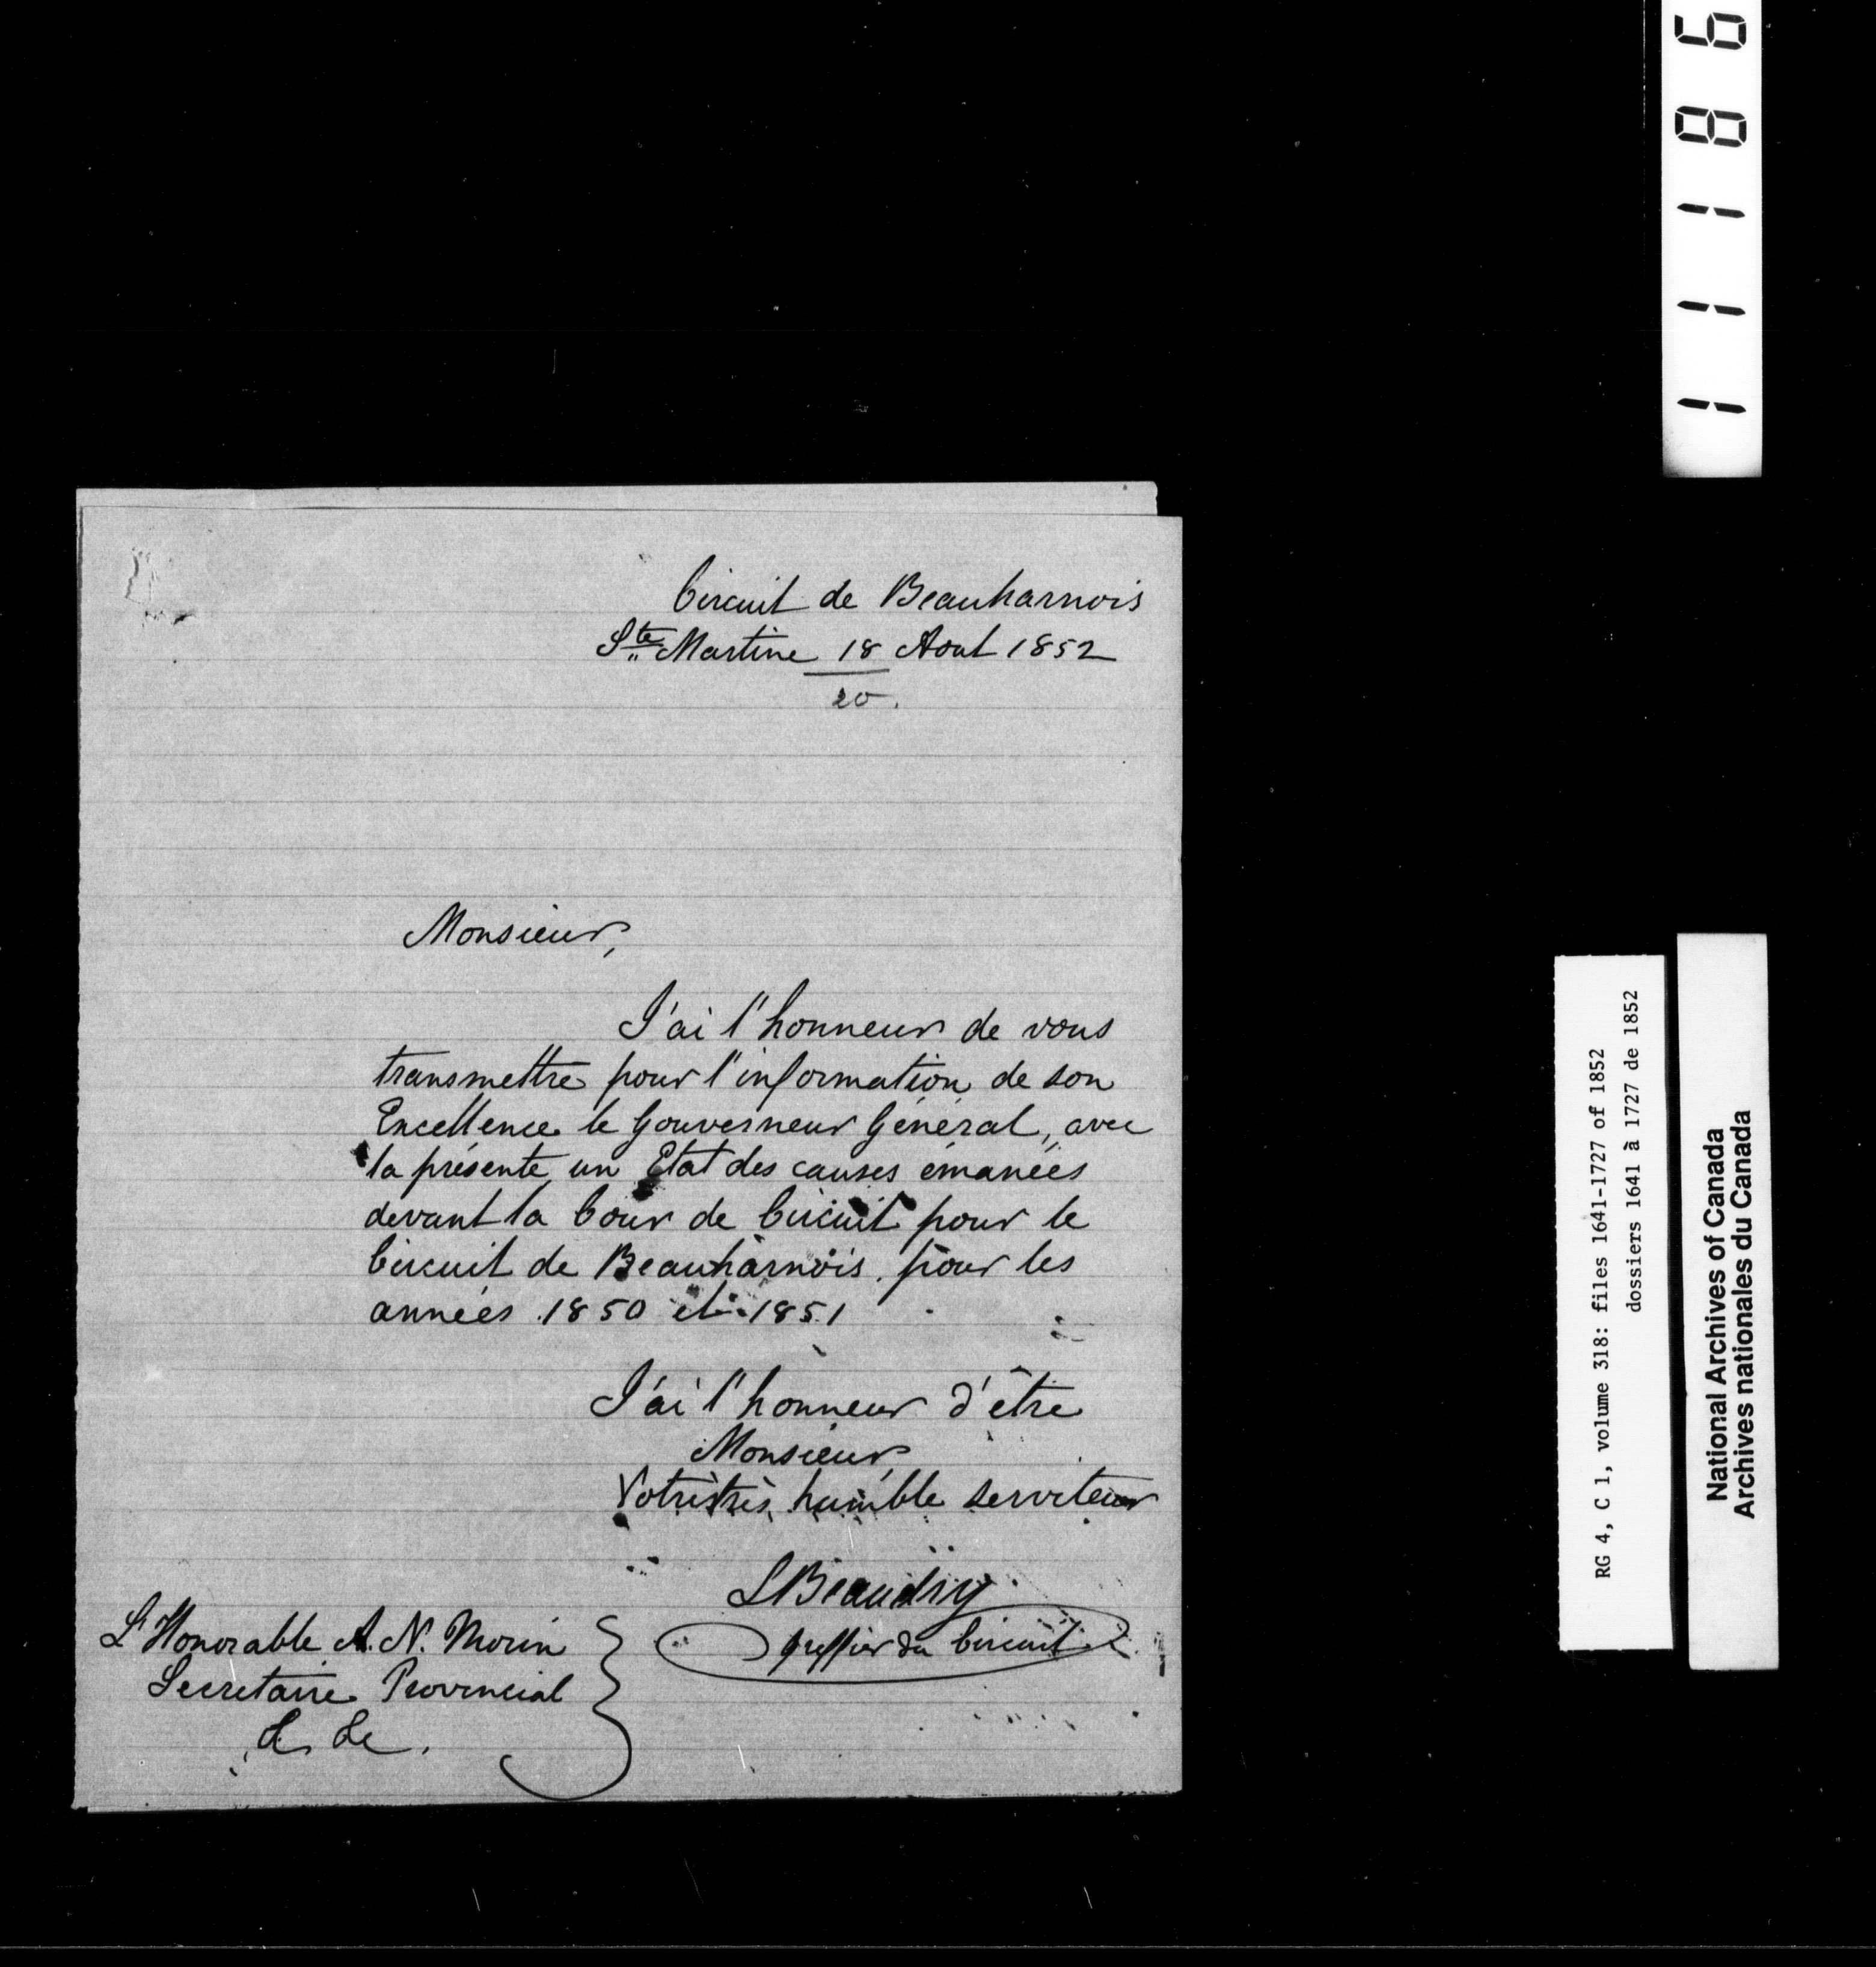 Circuit de Beauharnois
Ste Martine 18 Aout 1852
20.
Monsieur,
J'ai l'honneur de vous
transmettre pour l'information de son
Excellence le Gouverneur Général, avec
la présente un Etat des causes émanées
devant la Cour de Circuit pour le
Circuit de Beauharnois pour les
années 1850 et 1851
J'ai l'honneur d'être
Monsieur
Votre très humble serviteur
LBeaudry
Greffier du Circuit
L'Honorable A. N. Morin
Secretaire Provincial
&c &c.
111186
RG 4, C 1, volume 318: files 1641-1727 of 1852
dossiers 1641 à 1727 de 1852
National Archives of Canada
Archives nationales du Canada